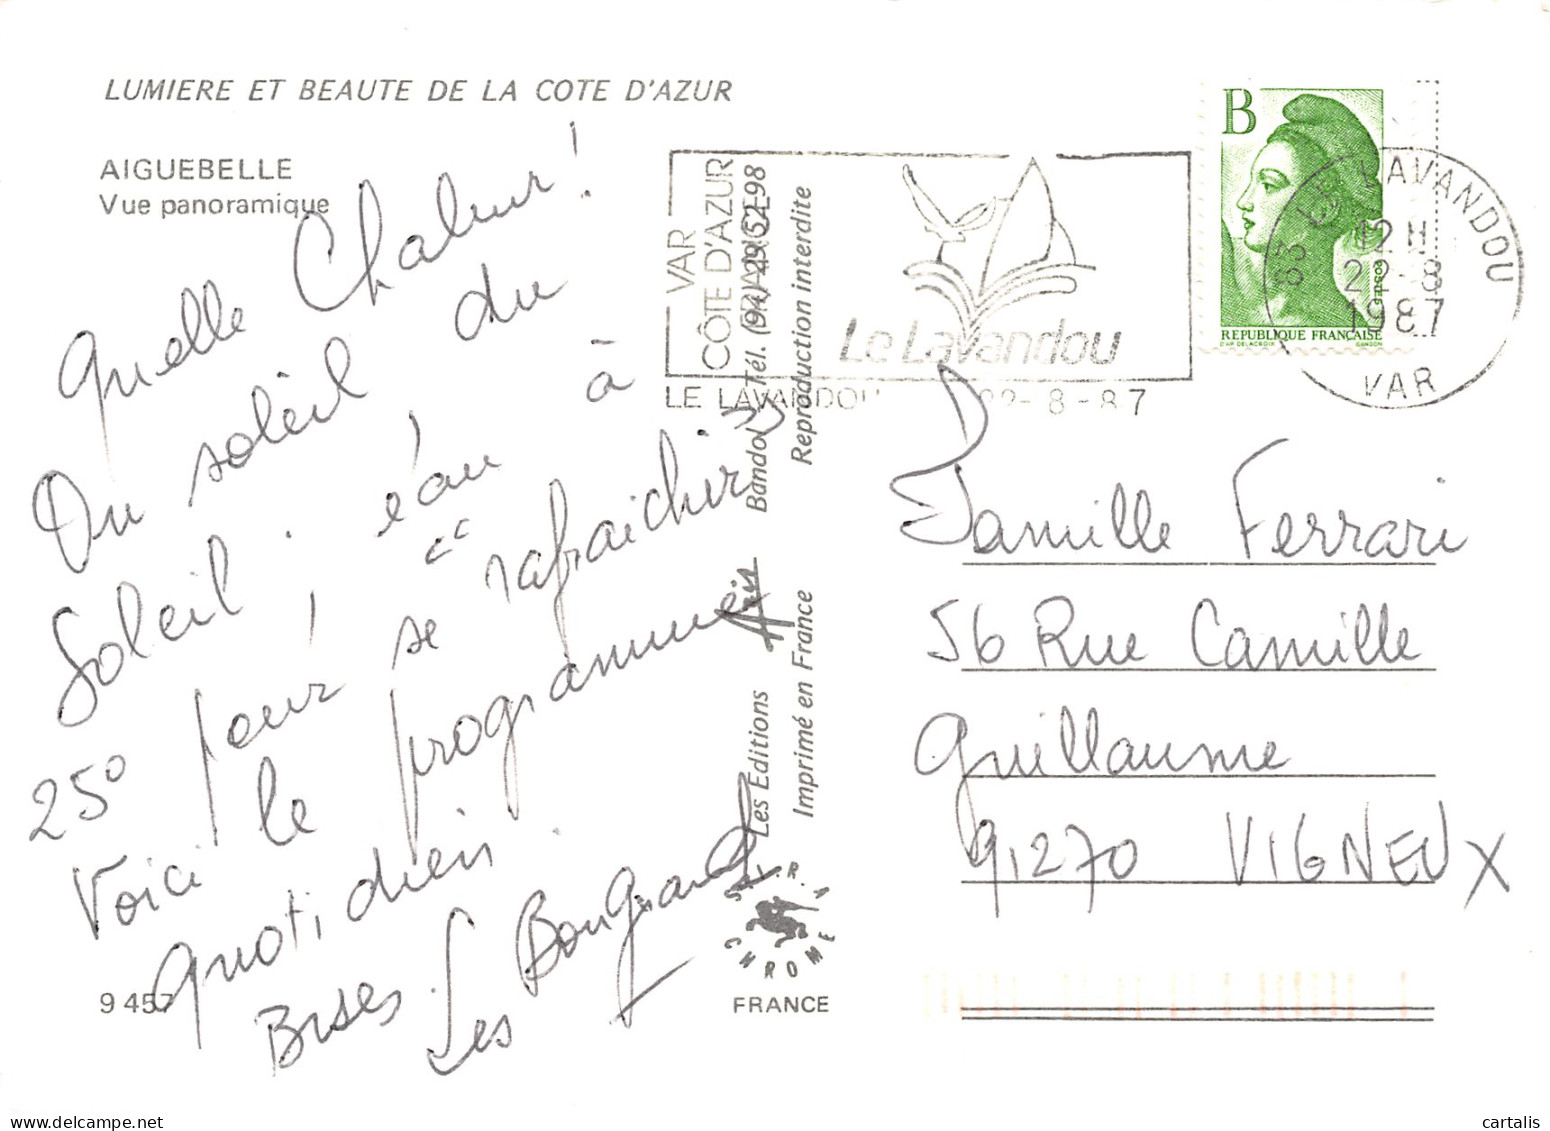 LUMIERE ET BEAUTE DE LA COTE D'AZUR
AIGUEBELLE
Vue panoramique
Quelle Chaleur !
Du soleil du
Soleil, eau à
25° pour " se rafraichir "
Voici le programme
quotidien.
Bises.
Les Bougrand
9 457
Les Editions
Bandol Tél. (94) 29.52.98
Imprimé en France
Reproduction interdite
CHROME
FRANCE
VAR
CÔTE D'AZUR
Le Lavandou
LE LAVANDOU 22-8-87
B
POSTES
REPUBLIQUE FRANÇAISE
D'AP. DELACROIX GANDON
83 LE LAVANDOU
12 H
22-8
1987
VAR
Famille Ferrari
56 Rue Camille
Guillaume
91270 VIGNEUX
cartalis